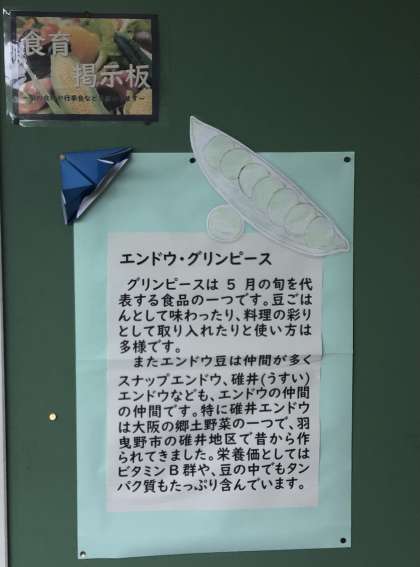 食育
掲示板
エンドウ・グリンピース
グリンピースは 5 月の旬を代
表する食品の一つです。豆ごは
んとして味わったり、料理の彩り
として取り入れたりと使い方は
多様です。
またエンドウ豆は仲間が多く
スナップエンドウ、碓井(うすい)
エンドウなども、エンドウの仲間
の仲間です。特に碓井エンドウ
は大阪の郷土野菜の一つで、羽
曳野市の碓井地区で昔から作
られてきました。栄養価としては
ビタミン B 群や、豆の中でもタン
パク質もたっぷり含んでいます。